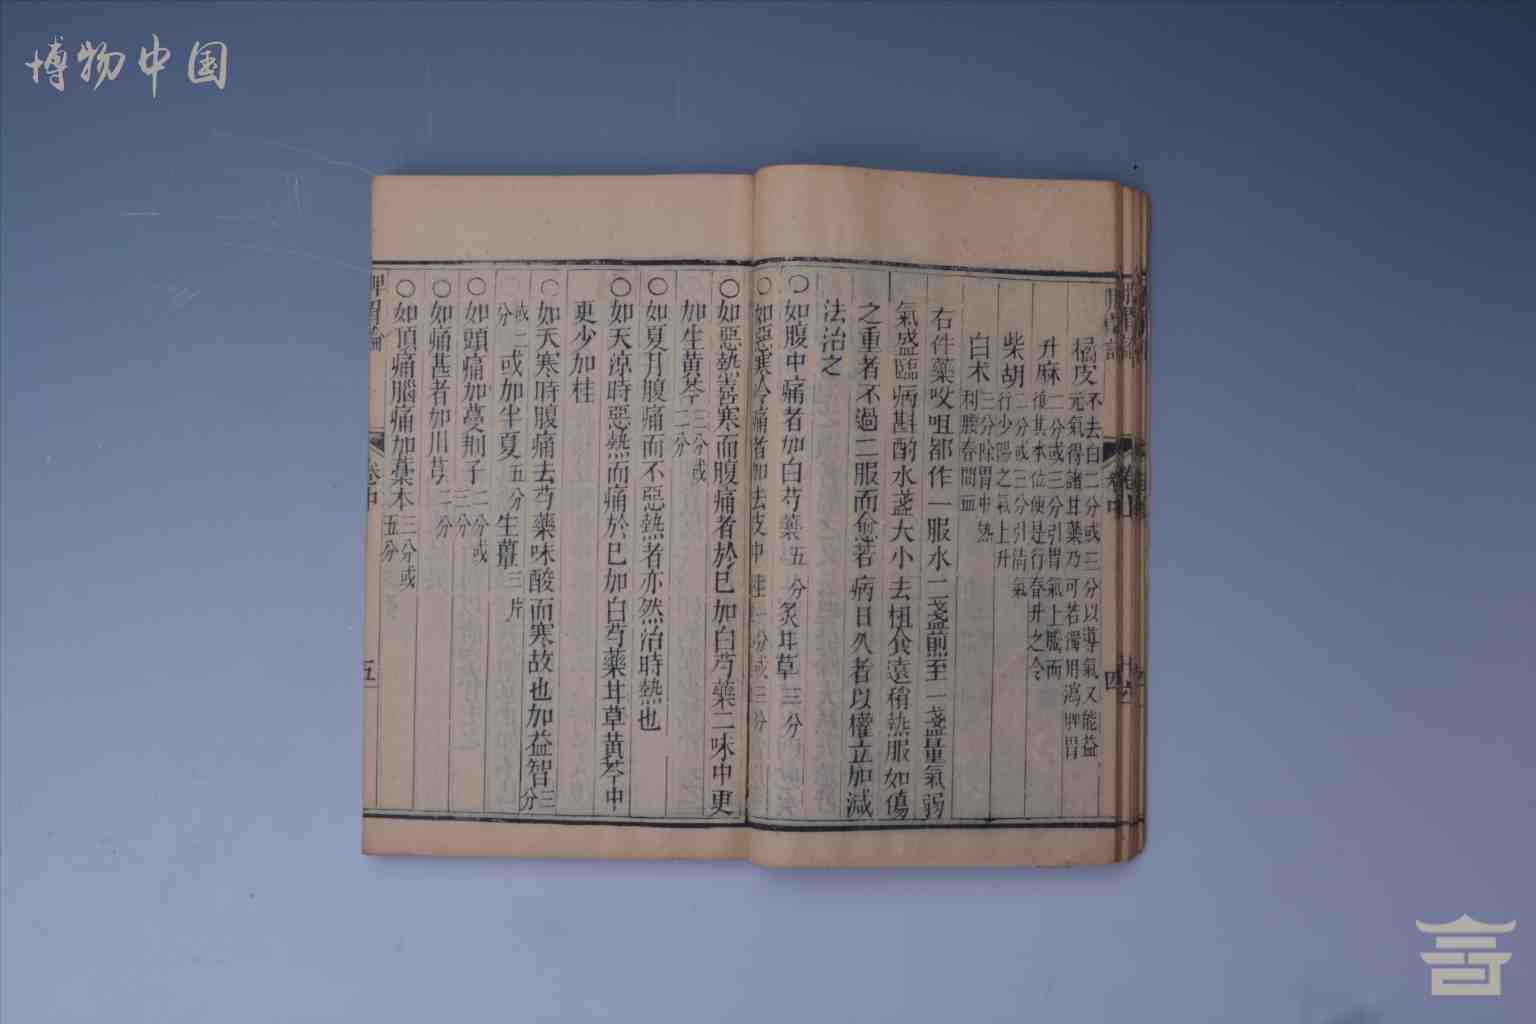 博物中国
橘皮不去白二分或三分以導氣又能益
元氣得諸甘藥乃可若獨用瀉脾胃
升麻二分或三分引胃氣上騰而
復其本位便是行春升之令
柴胡二分或三分引清氣
行少陽之氣上升
白朮三分除胃中熱
利腰臍間血
右件藥㕮咀都作一服水二盞煎至一盞量氣弱
氣盛臨病斟酌水盞大小去柤食遠稍熱服如傷
之重者不過二服而愈若病日久者以權立加減
法治之
○如腹中痛者加白芍藥五分炙甘草三分
○如惡寒冷痛者加去皮中桂一分或三分
○如惡熱喜寒而腹痛者於已加白芍藥二味中更
加生黃芩三分或
二分
○如夏月腹痛而不惡熱者亦然治時熱也
○如天涼時惡熱而痛於已加白芍藥甘草黃芩中
更少加桂
○如天寒時腹痛去芍藥味酸而寒故也加益智三
分
或二
分或加半夏五分生薑三片
○如頭痛加蔓荊子二分或
三分
○如痛甚者加川芎二分
○如頂痛腦痛加藁本三分或
五分
脾胃論
卷中
五
卷中
四